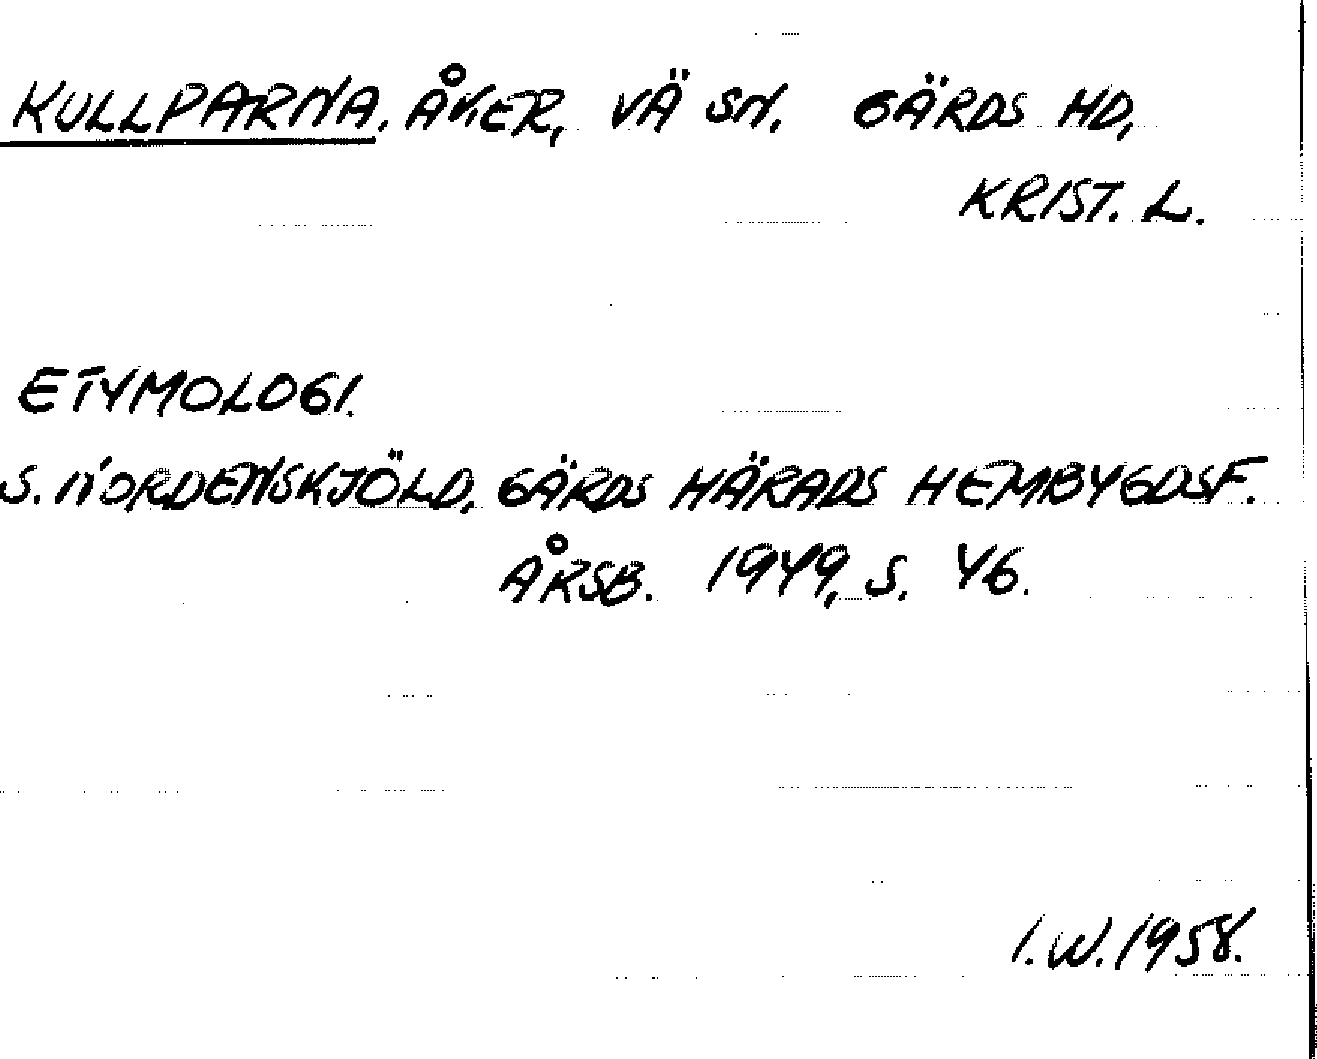 KULLPARNA, ÅKER, VÄ SN. GÄRDS HD,
KRIST. L.
ETYMOLOGI.
S. NORDENSKJÖLD, GÄRDS HÄRADS HEMBYGDSF.
ÅRSB. 1949, S. 46.
I.W. 1958.